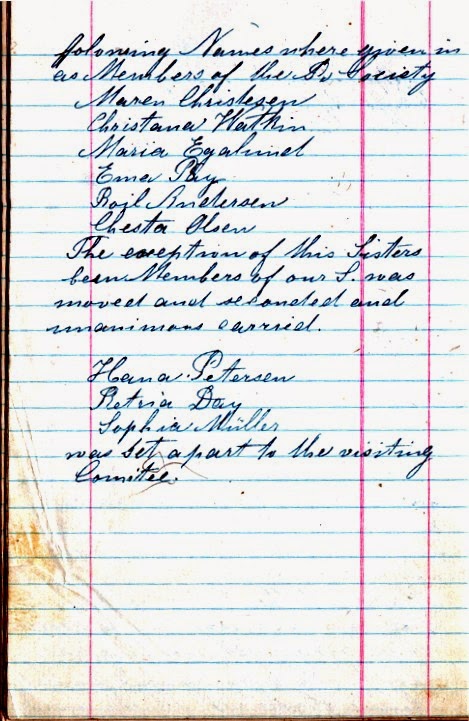 folowing Names where given in
as Members of the R. Society
Maren Christesen
Christana Watkin
Maria Egalund
Ema Pay
Boil Andersen
Chesta Olsen
The exeption of this Sisters
been Members of our S. was
moved and seconded and
unanimous carried.
Hana Petersen
Retria Day
Sophia Müller
was set apart to the visiting
Comitee.